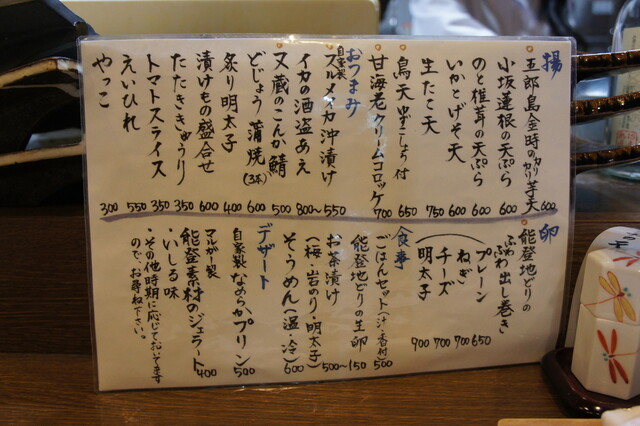 揚
五郎島金時のカリカリ芋天 600
小坂蓮根の天ぷら 600
のと椎茸の天ぷら 600
いかとげそ天 600
生たこ天 750
鳥天 ゆずこしょう付 650
甘海老クリームコロッケ 700
おつまみ
自家製スルメイカ沖漬け 550
イカの酒盗あえ 800〜
又蔵のこんか鯖 500
どじょう蒲焼(3本) 600
炙り明太子 400
漬けもの盛合せ 600
たたききゅうり 350
トマトスライス 350
えいひれ 550
やっこ 300
卵
能登地どりの
ふわふわ出し巻き
プレーン 650
ねぎ 700
チーズ 700
明太子 900
食事
ごはんセット(汁・香付) 500
能登地どりの生卵 150
お茶漬け 500〜
(梅・岩のり・明太子)
そうめん(温・冷) 600
デザート
自家製なめらかプリン 500
マルガー製
能登素材のジェラート 400
・いしる味
・その他時期に応じておいてます
ので、お尋ね下さい。